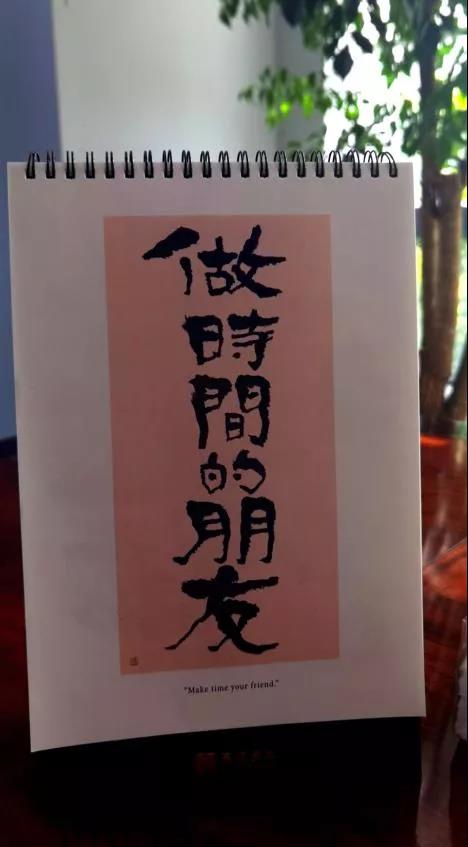 做時間的朋友
"Make time your friend."